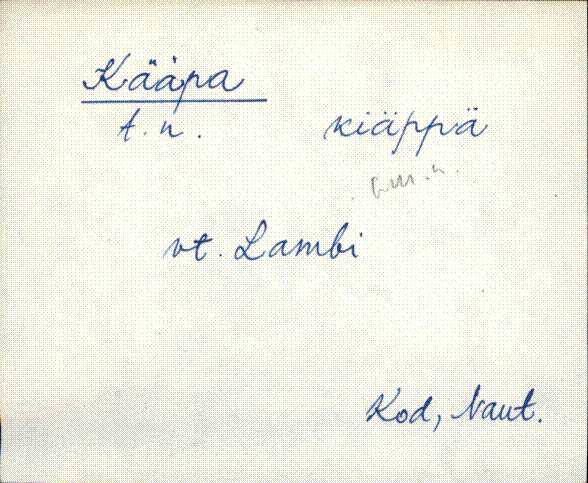 Kääpa
t. n. kiäppä
vt. Lambi
Kod, Naut.